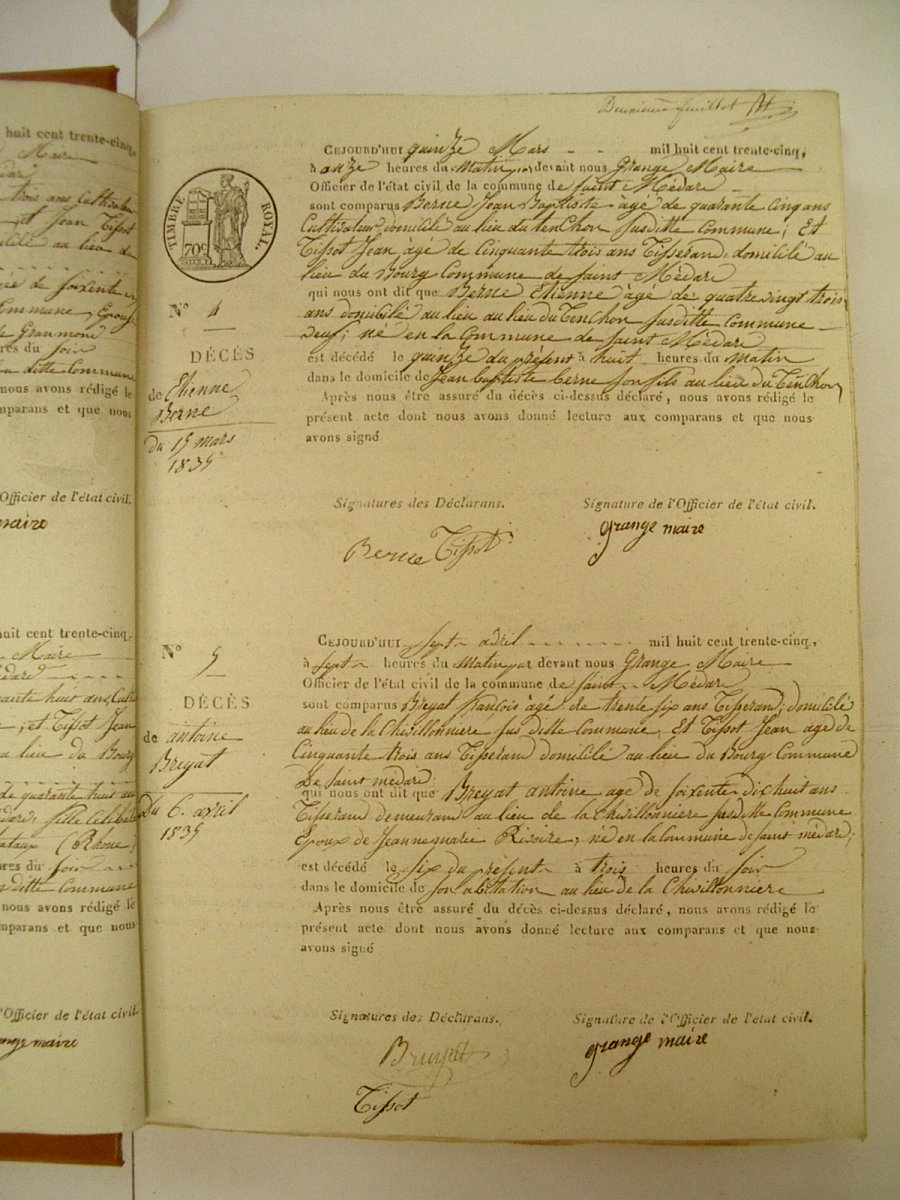 huit cent trente-cinq,
Maire
trois ans Cultivateur
et Jean Tissot
au lieu du
de soixente et
Commune, Epouse
de Grammond
res du soir
ditte Commune
nous avons rédigé le
mparans et que nous
Officier de l'état civil.
maire
huit cent trente-cinq,
Maire
Médard
quarante huit ans, Culti
; et Tissot Jean
lieu du Bourg
de quarante huit ans
fille Célibataire
(Rhone)
res du soir
ditte Commune
nous avons rédigé le
mparans et que nous
l'Officier de l'état civil.
grange maire
Deuxième feuillet
TIMBRE ROYAL.
70c
CEJOURD'HUI quinze Mars - - mil huit cent trente-cinq,
à onze heures du Matin par devant nous Grange Maire
Officier de l'état civil de la commune de Saint Médard
sont comparus Berne Jean Baptiste âgé de quarante cinq ans
Cultivateur, domicilié au lieu du tenChon susditte Commune; Et
Tissot Jean âgé de Cinquante trois ans Tisserand, domicilié au
lieu du Bourg Commune de Saint Médard
qui nous ont dit que Berne Etienne âgé de quatre vingt trois
ans domicilié au lieu au lieu du TenChon susditte Commune
veuf; né en la Commune de Saint Médard
est décédé le quinze du présent à huit heures du Matin
dans le domicile de Jean baptiste berne son fils au lieu du TenChon
Après nous être assuré du décès ci-dessus déclaré, nous avons rédigé le
présent acte dont nous avons donné lecture aux comparans et que nous
avons signé
N° 4
DÉCÈS
de Etienne
Berne
du 15 mars
1835
Signatures des Déclarans. Signature de l'Officier de l'état civil.
Berne Tissot grange maire
N° 5
DÉCÈS
de antoine
Breyat
Du 6. avril
1835
CEJOURD'HUI sept avril mil huit cent trente-cinq,
à sept heures du Matin par devant nous Grange Maire
Officier de l'état civil de la commune de Saint Médard
sont comparus Breyat francois âgé de trente six ans Tisserand, domicilié
au lieu de la Chivillonniere sus ditte Commune, Et Tissot Jean age de
Cinquante trois ans Tisserand domicilié au lieu du Bourg Commune
De Saint médard;
qui nous ont dit que Breyat antoine age de soixente dichuit ans
Tisserand demeurant au lieu de la Chivillonniere susditte Commune
Epoux de Jeanne marie Rivoire, né en la Commune de Saint médard;
est décédé le six du présent à trois heures du soir
dans le domicile de son abitation au lieu de la Chivillonniere
Après nous être assuré du décès ci-dessus déclaré, nous avons rédigé le
présent acte dont nous avons donné lecture aux comparans et que nous
avons signé
Signatures des Déclarans. Signature de l'Officier de l'état civil.
Bruyat grange maire
Tissot